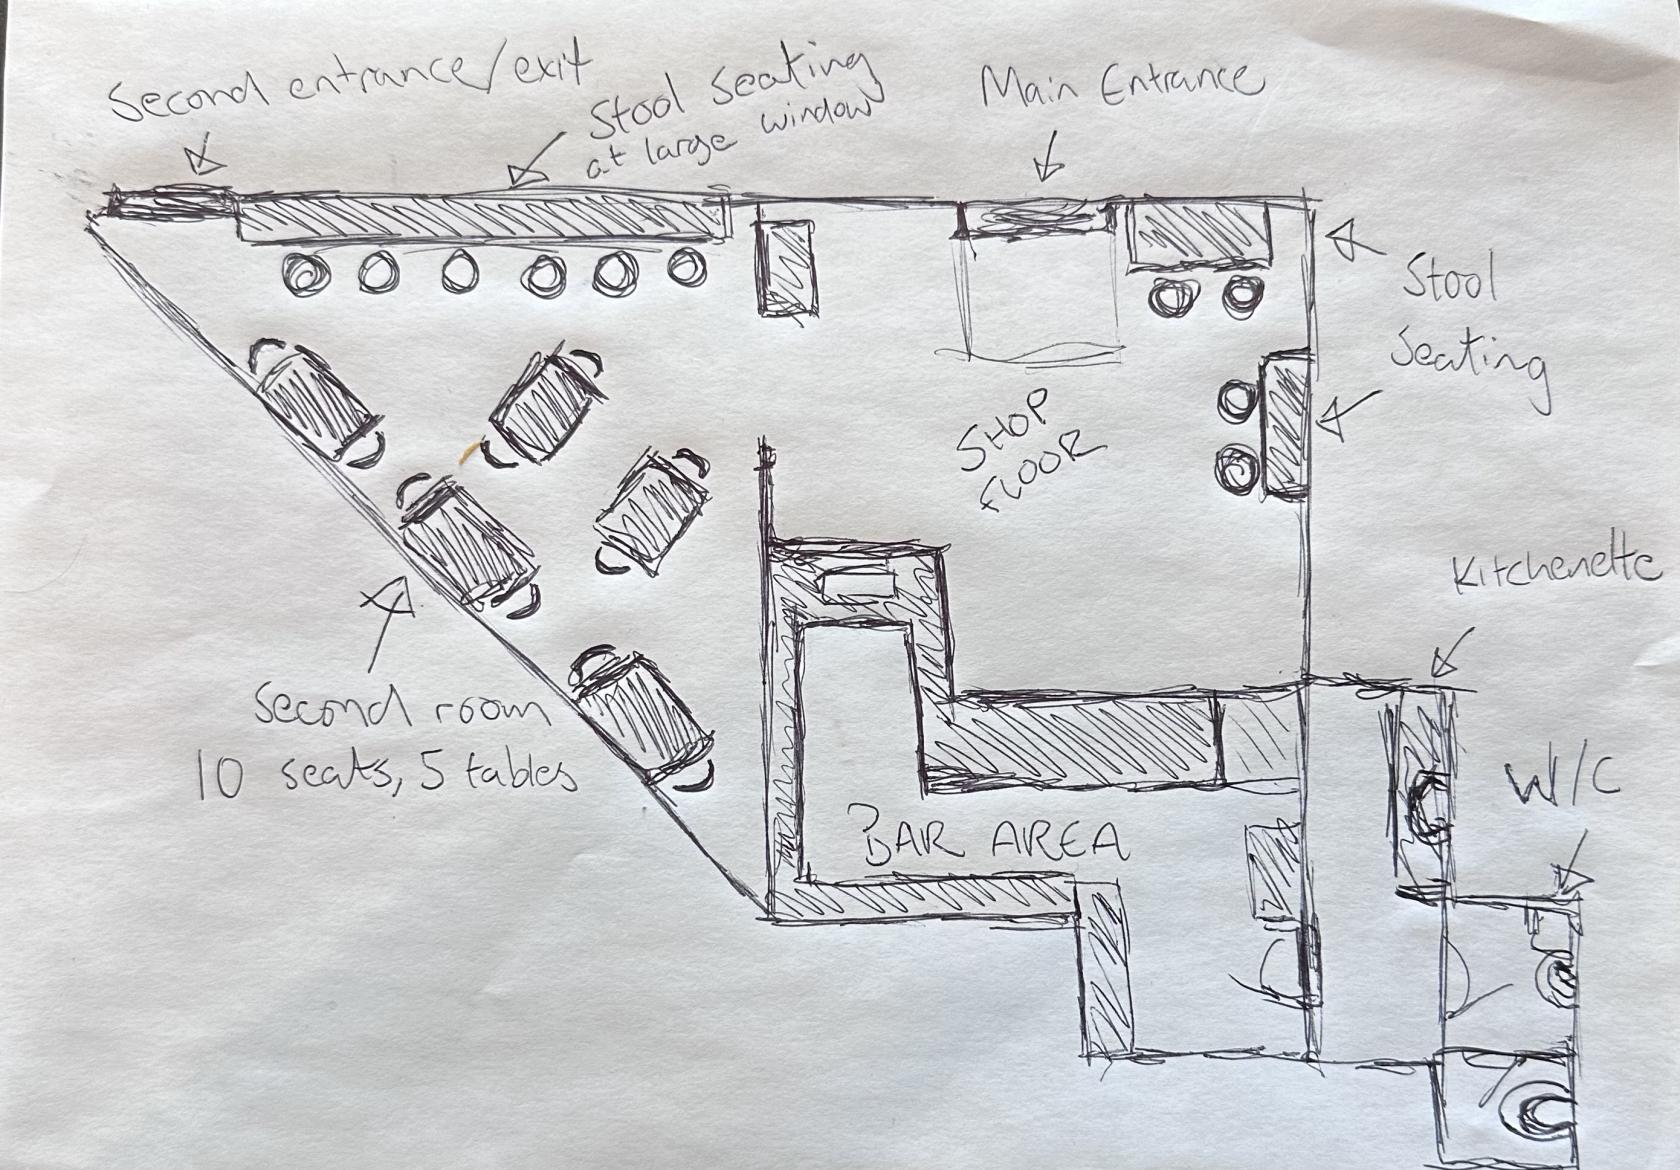 Second entrance/exit
Stool seating
at large window
Main Entrance
Stool
Seating
SHOP
FLOOR
Kitchenette
Second room
10 seats, 5 tables
W/C
BAR AREA